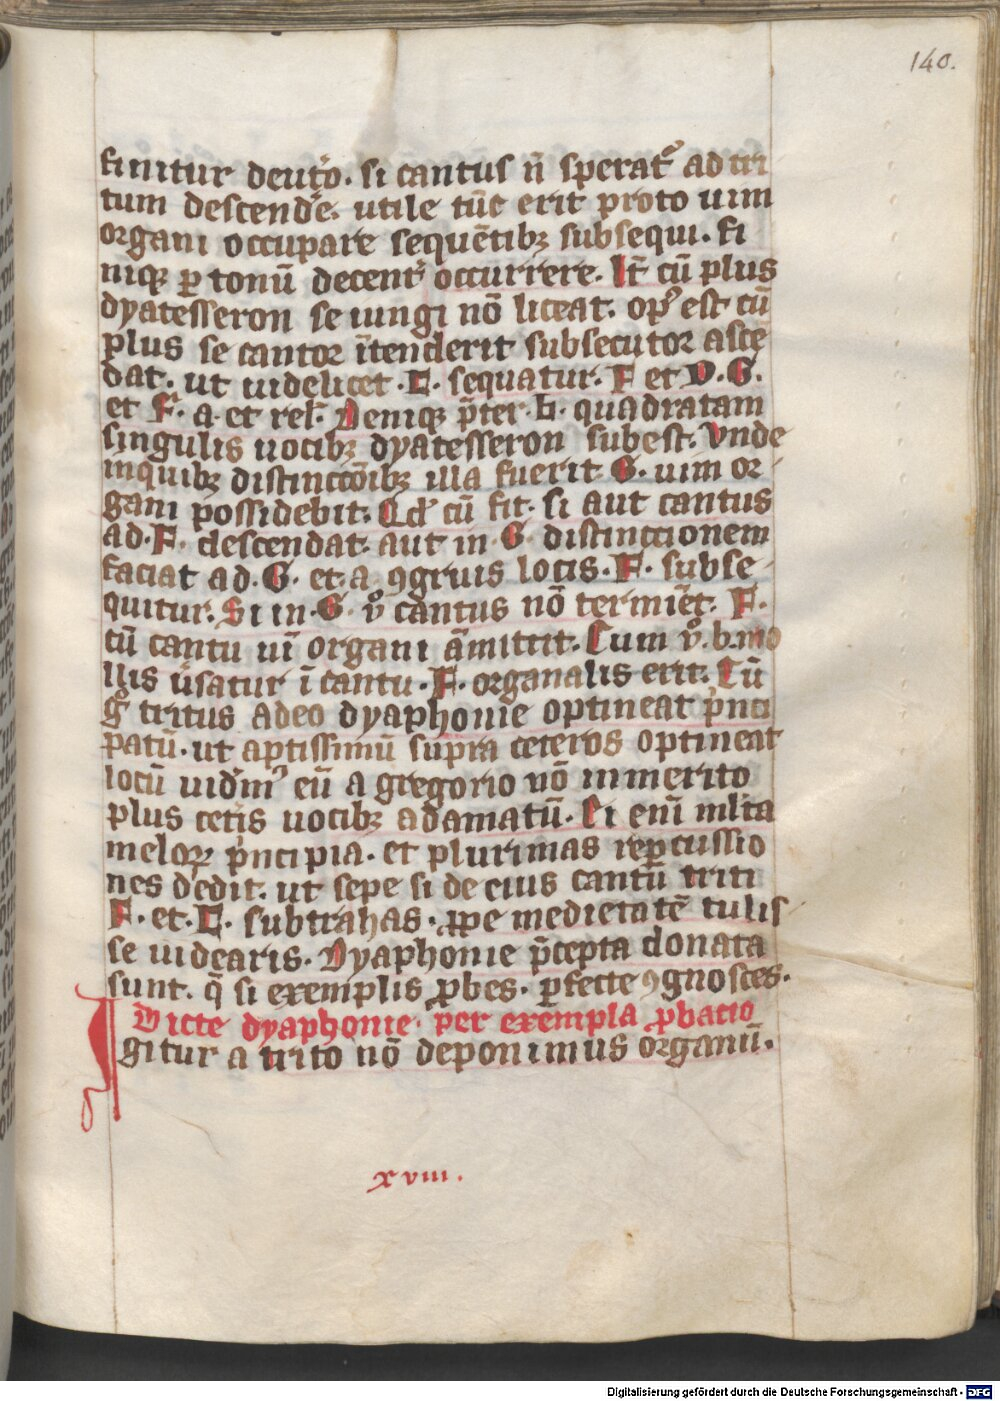 140.
finitur deut̉o. si cantus n̄ sperat᷑ ad tri
tum descend̉e. utile tūc erit proto uim
organi occupare sequētibꝫ subsequi. fi
niqꝫ ꝑ tonū decent᷑ occurrere. It̄ cū plus
dyatesseron se iungi nō liceat. opꝰ est cū
plus se cantor ītenderit subsecutor ascē
dat. ut uidelicet .C. sequatur. F et D. G.
et F. a. et rel̄. Deniqꝫ p̄ter .h. quadratam
singulis uocibꝫ dyatesseron subest. Vnde
inquibꝫ distinctōibꝫ illa fuerit G. uim or
gani possidebit. Qd̓ cū fit. si aut cantus
ad .F. descendat. aut in G. distinctionem
faciat ad .G. et. a ꝯgruis locis .F. subse
quitur. Si in .G. v̊ cantus nō termiēt. F.
cū cantu uī organi āmittit. Cum v̊. b. mo
llis ūsatur ī cantu .F. organalis erit. Cū
gͦ tritus adeo dyaphonie optineat pͥnci
patū. ut aptissimū supra ceteros optineat
locū uidemꝰ eū a gregorio nō inmerito
plus cet̉is uocibꝫ adamatū. Ei enī ml̄ta
meloꝝ pͥncipia. et plurimas reꝑcussio
nes dedit. ut sepe si de eius cantū triti
F. et .C. subtrahas. ꝓpe medietatē tulis
se uidearis. Dyaphonie p̄cepta donata
sunt. q̄ si exemplis ꝓbes. ꝑfecte ꝯgnosces.
Dicte dyaphonie. per exempla ꝓbatio
Igitur a trito nō deponimus organū.
xviii.
Digitalisierung gefördert durch die Deutsche Forschungsgemeinschaft - DFG